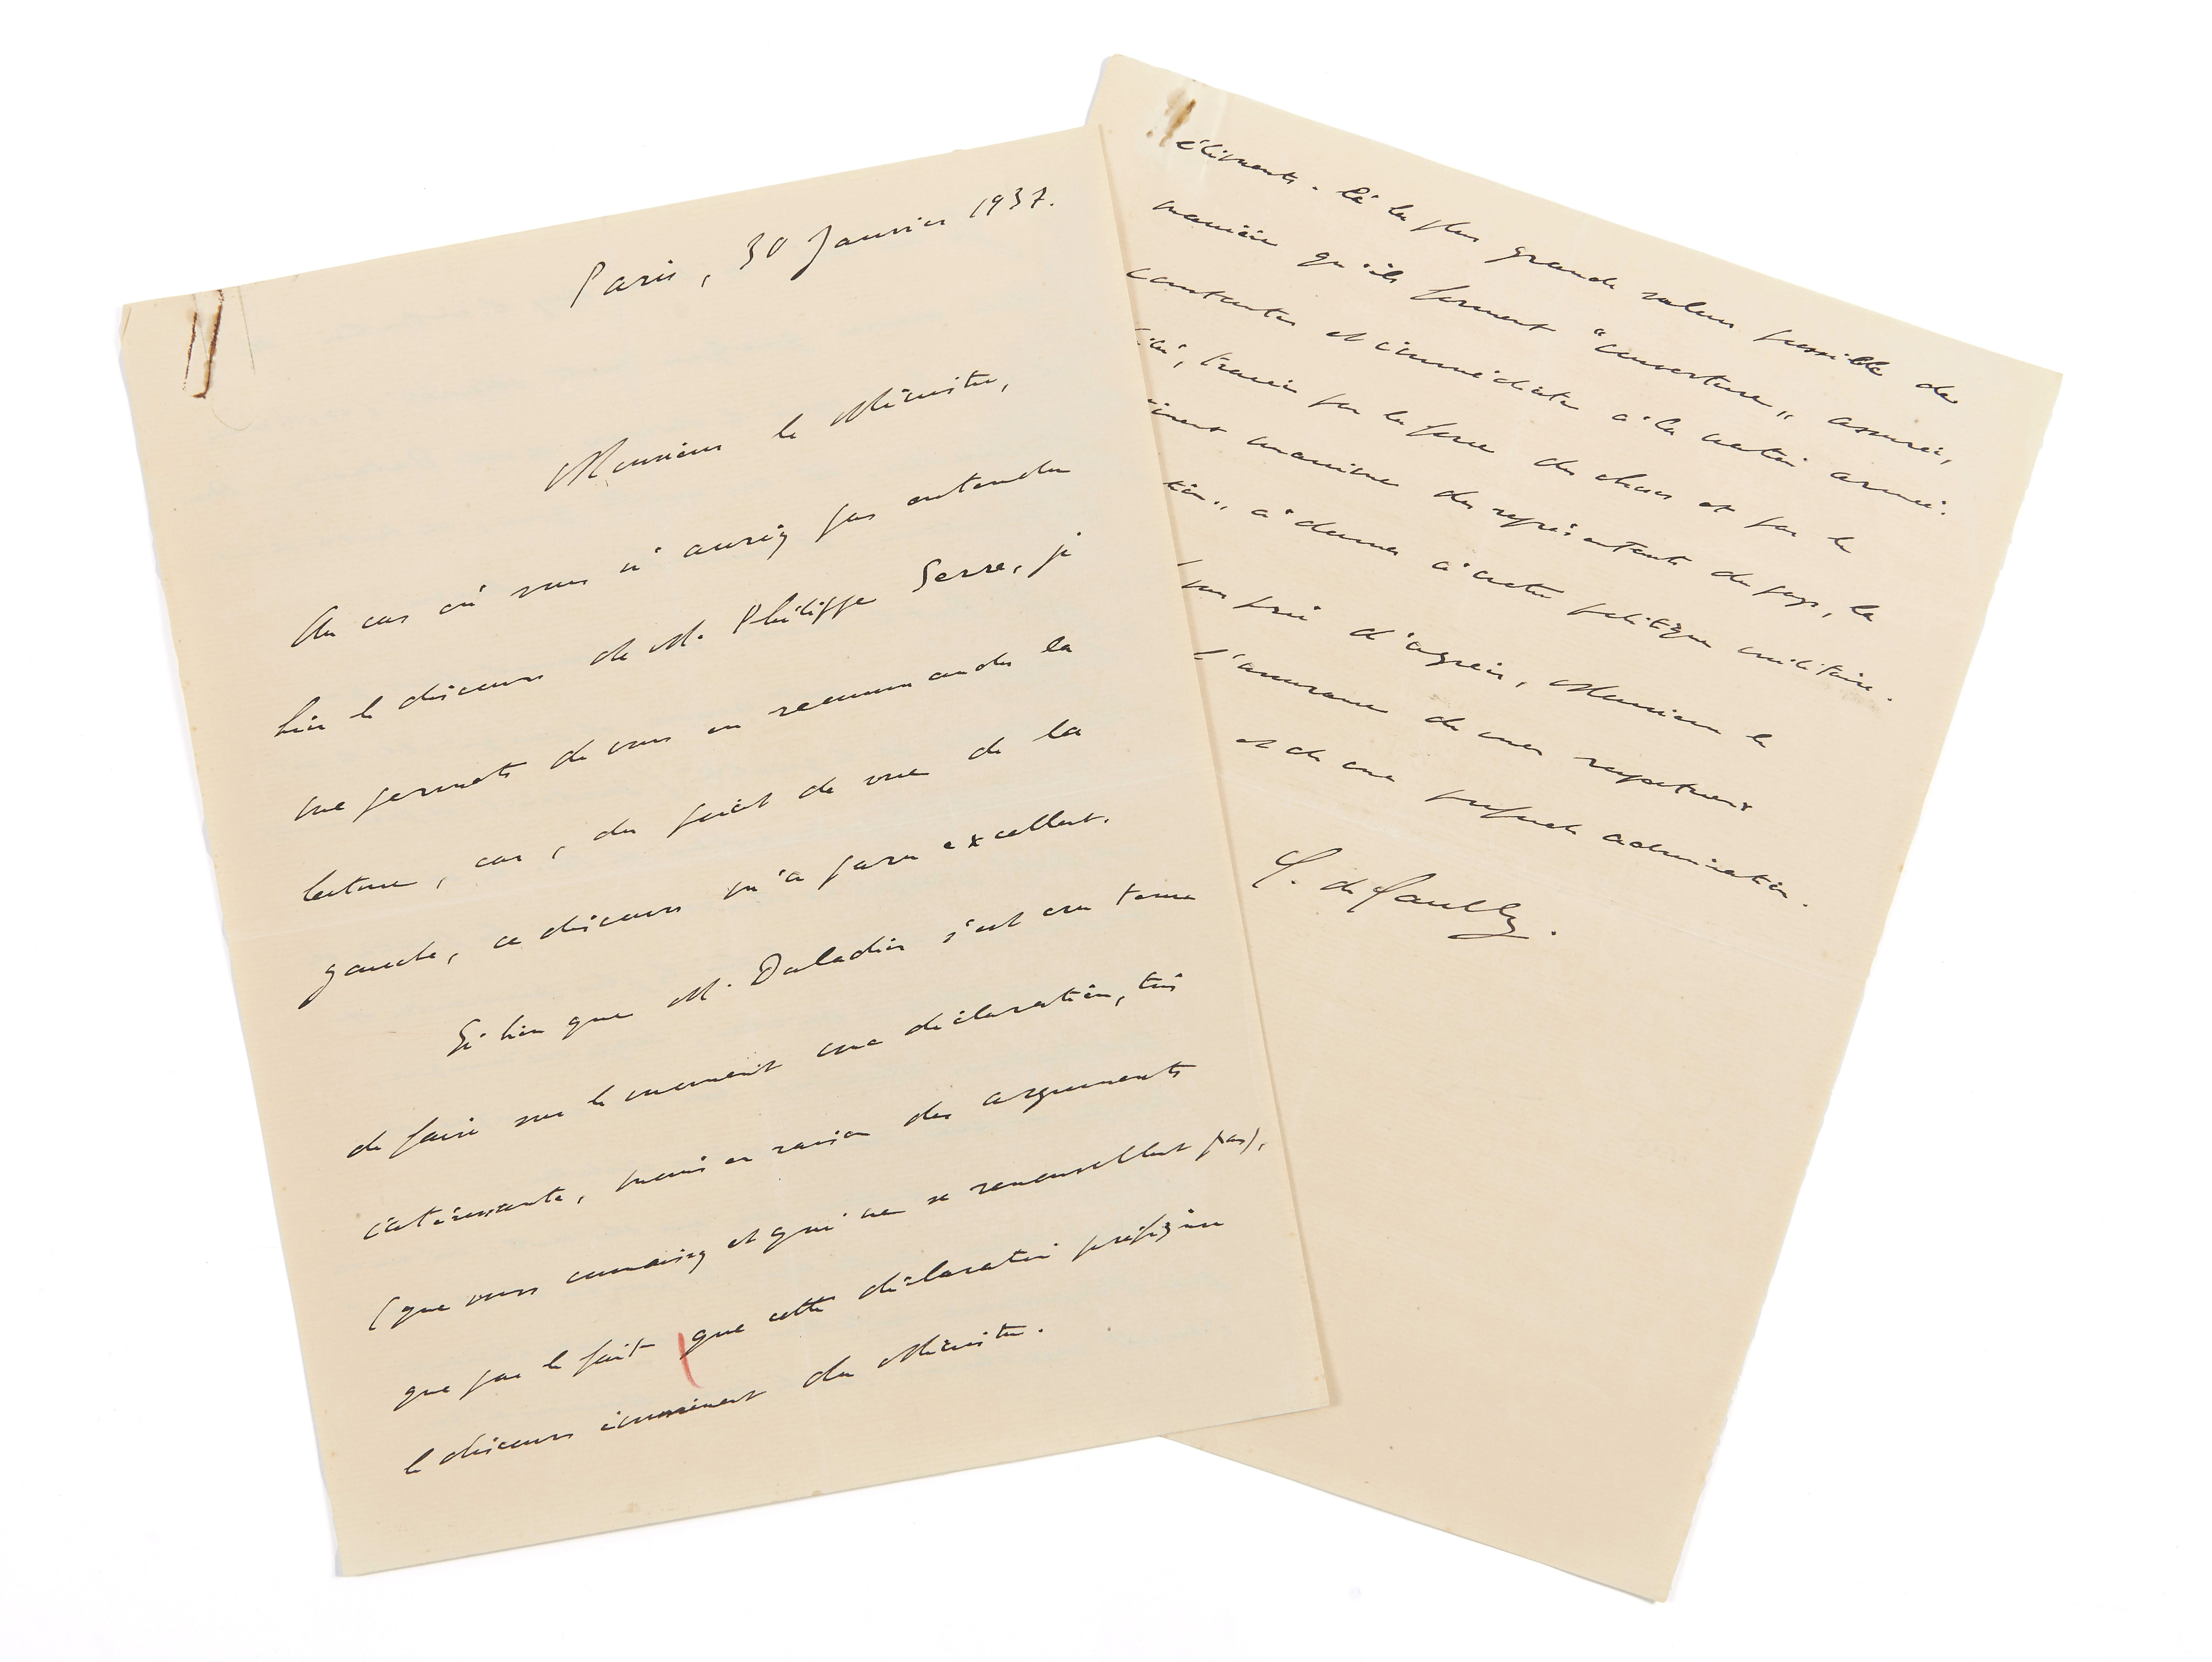 Paris, 30 Janvier 1937.
Monsieur le Ministre,
Au cas où vous n'auriez pas entendu
hier le discours de M. Philippe Serre, je
me permets de vous en recommander la
lecture, car, du point de vue de la
gauche, ce discours m'a paru excellent.
Si bien que M. Daladier s'est cru tenu
de faire sur le moment une déclaration, très
intéressante, mais en raison des arguments
(que vous connaissez et qui ne se renouvellent pas),
que par le fait que cette déclaration préfigure
le discours imminent du Ministre.
éléments-là la plus grande valeur possible de
manière qu'ils forment "couverture" assurée,
constante et immédiate à la nation armée.
tracée par la force des choses et par le
des représentants du pays, la
à donner à cette politique militaire.
prie d'agréer, Monsieur le
l'assurance de mes respectueux
et de ma profonde admiration.
C. de Gaulle.